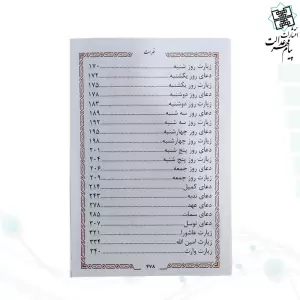 انتشارات
پیام عدالت
فهرست
زیارت روز شنبه ۱۷۰
دعای روز یکشنبه ۱۷۲
زیارت روز یکشنبه ۱۷۵
دعای روز دوشنبه ۱۷۸
زیارت روز دوشنبه ۱۸۳
دعای روز سه شنبه ۱۸۹
زیارت روز سه شنبه ۱۹۲
دعای روز چهارشنبه ۱۹۵
زیارت روز چهارشنبه ۱۹۸
دعای روز پنج شنبه ۲۰۱
زیارت روز پنج شنبه ۲۰۴
دعای روز جمعه ۲۰۶
زیارت روز جمعه ۲۰۹
دعای کمیل ۲۱۴
دعای ندبه ۲۴۳
دعای عهد ۲۷۸
دعای سمات ۲۸۵
دعای توسل ۳۰۷
زیارت عاشورا ۳۲۱
زیارت امین الله ۳۳۴
زیارت وارث ۳۴۰
۴۷۸